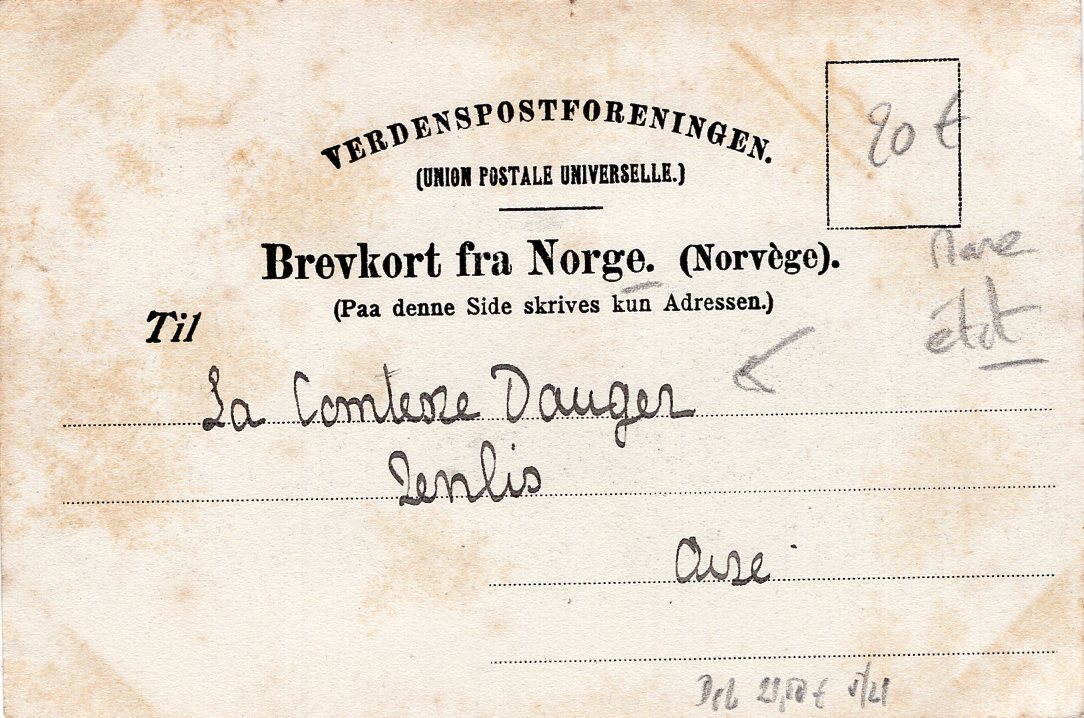 VERDENSPOSTFORENINGEN.
(UNION POSTALE UNIVERSELLE.)
Brevkort fra Norge. (Norvège).
(Paa denne Side skrives kun Adressen.)
90 €
état
Til
La Comtesse Dauger
Senlis
Oise